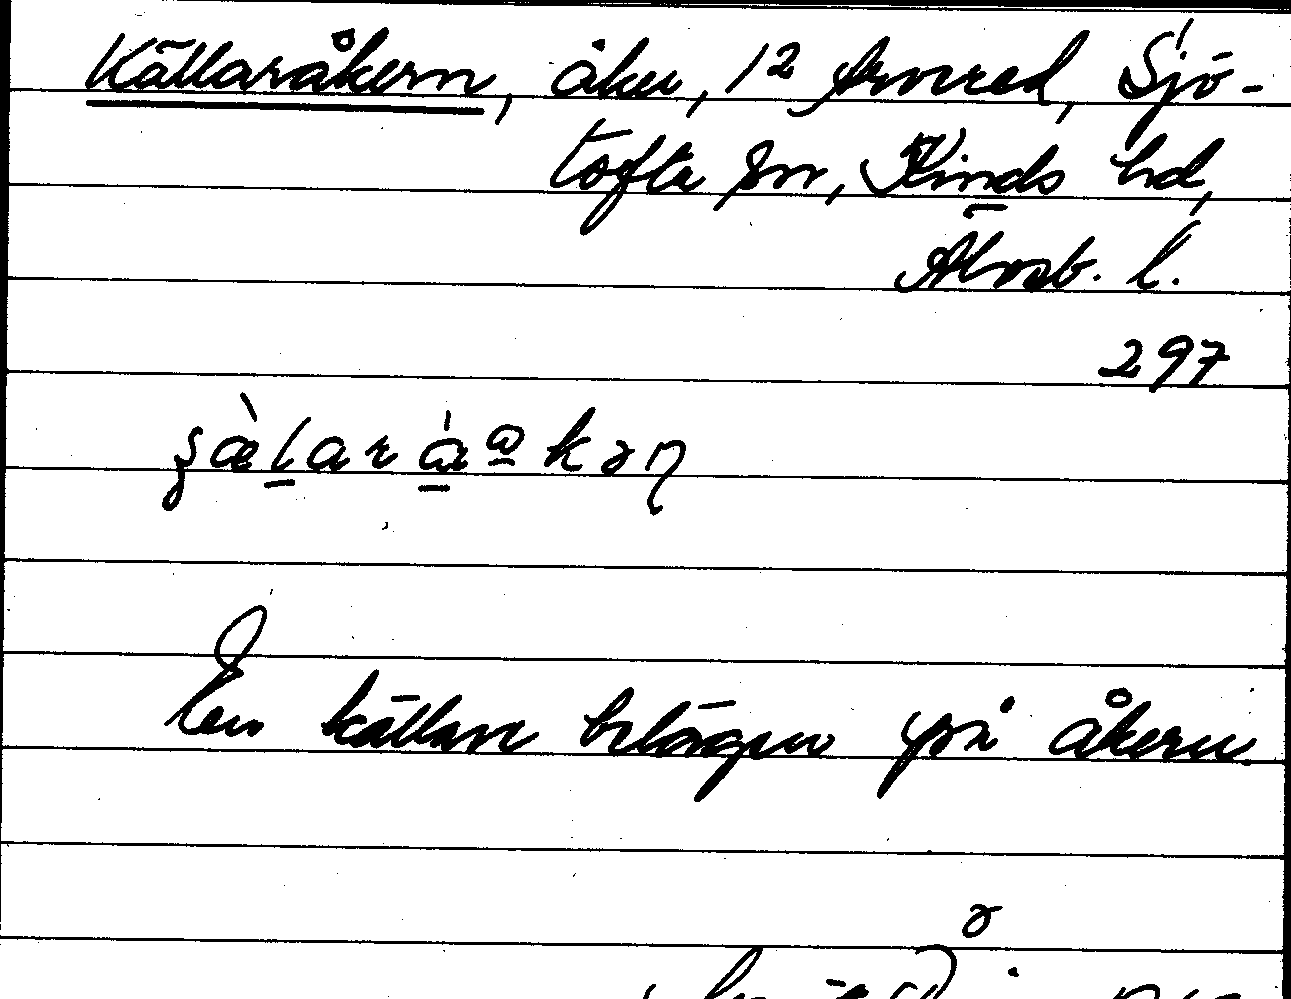 Källaråkern, åker, 1² Arnered, Sjö-
tofta sn, Kinds hd,
Älvsb. l.
297
En källare belägen på åkern.